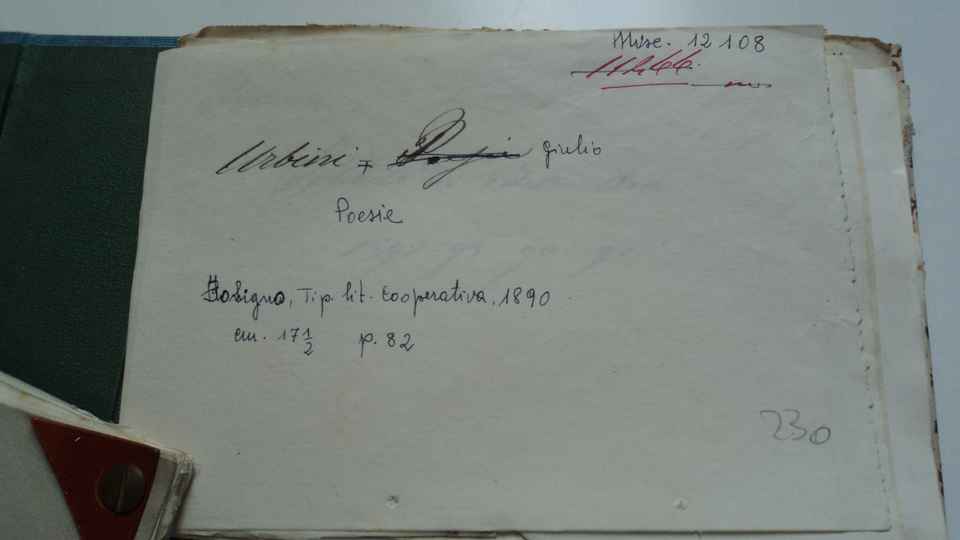 Misc. 12108
Urbini Giulio
Poesie
Foligno, Tip. lit. Cooperativa, 1890
cm. 17 1/2 p. 82
230